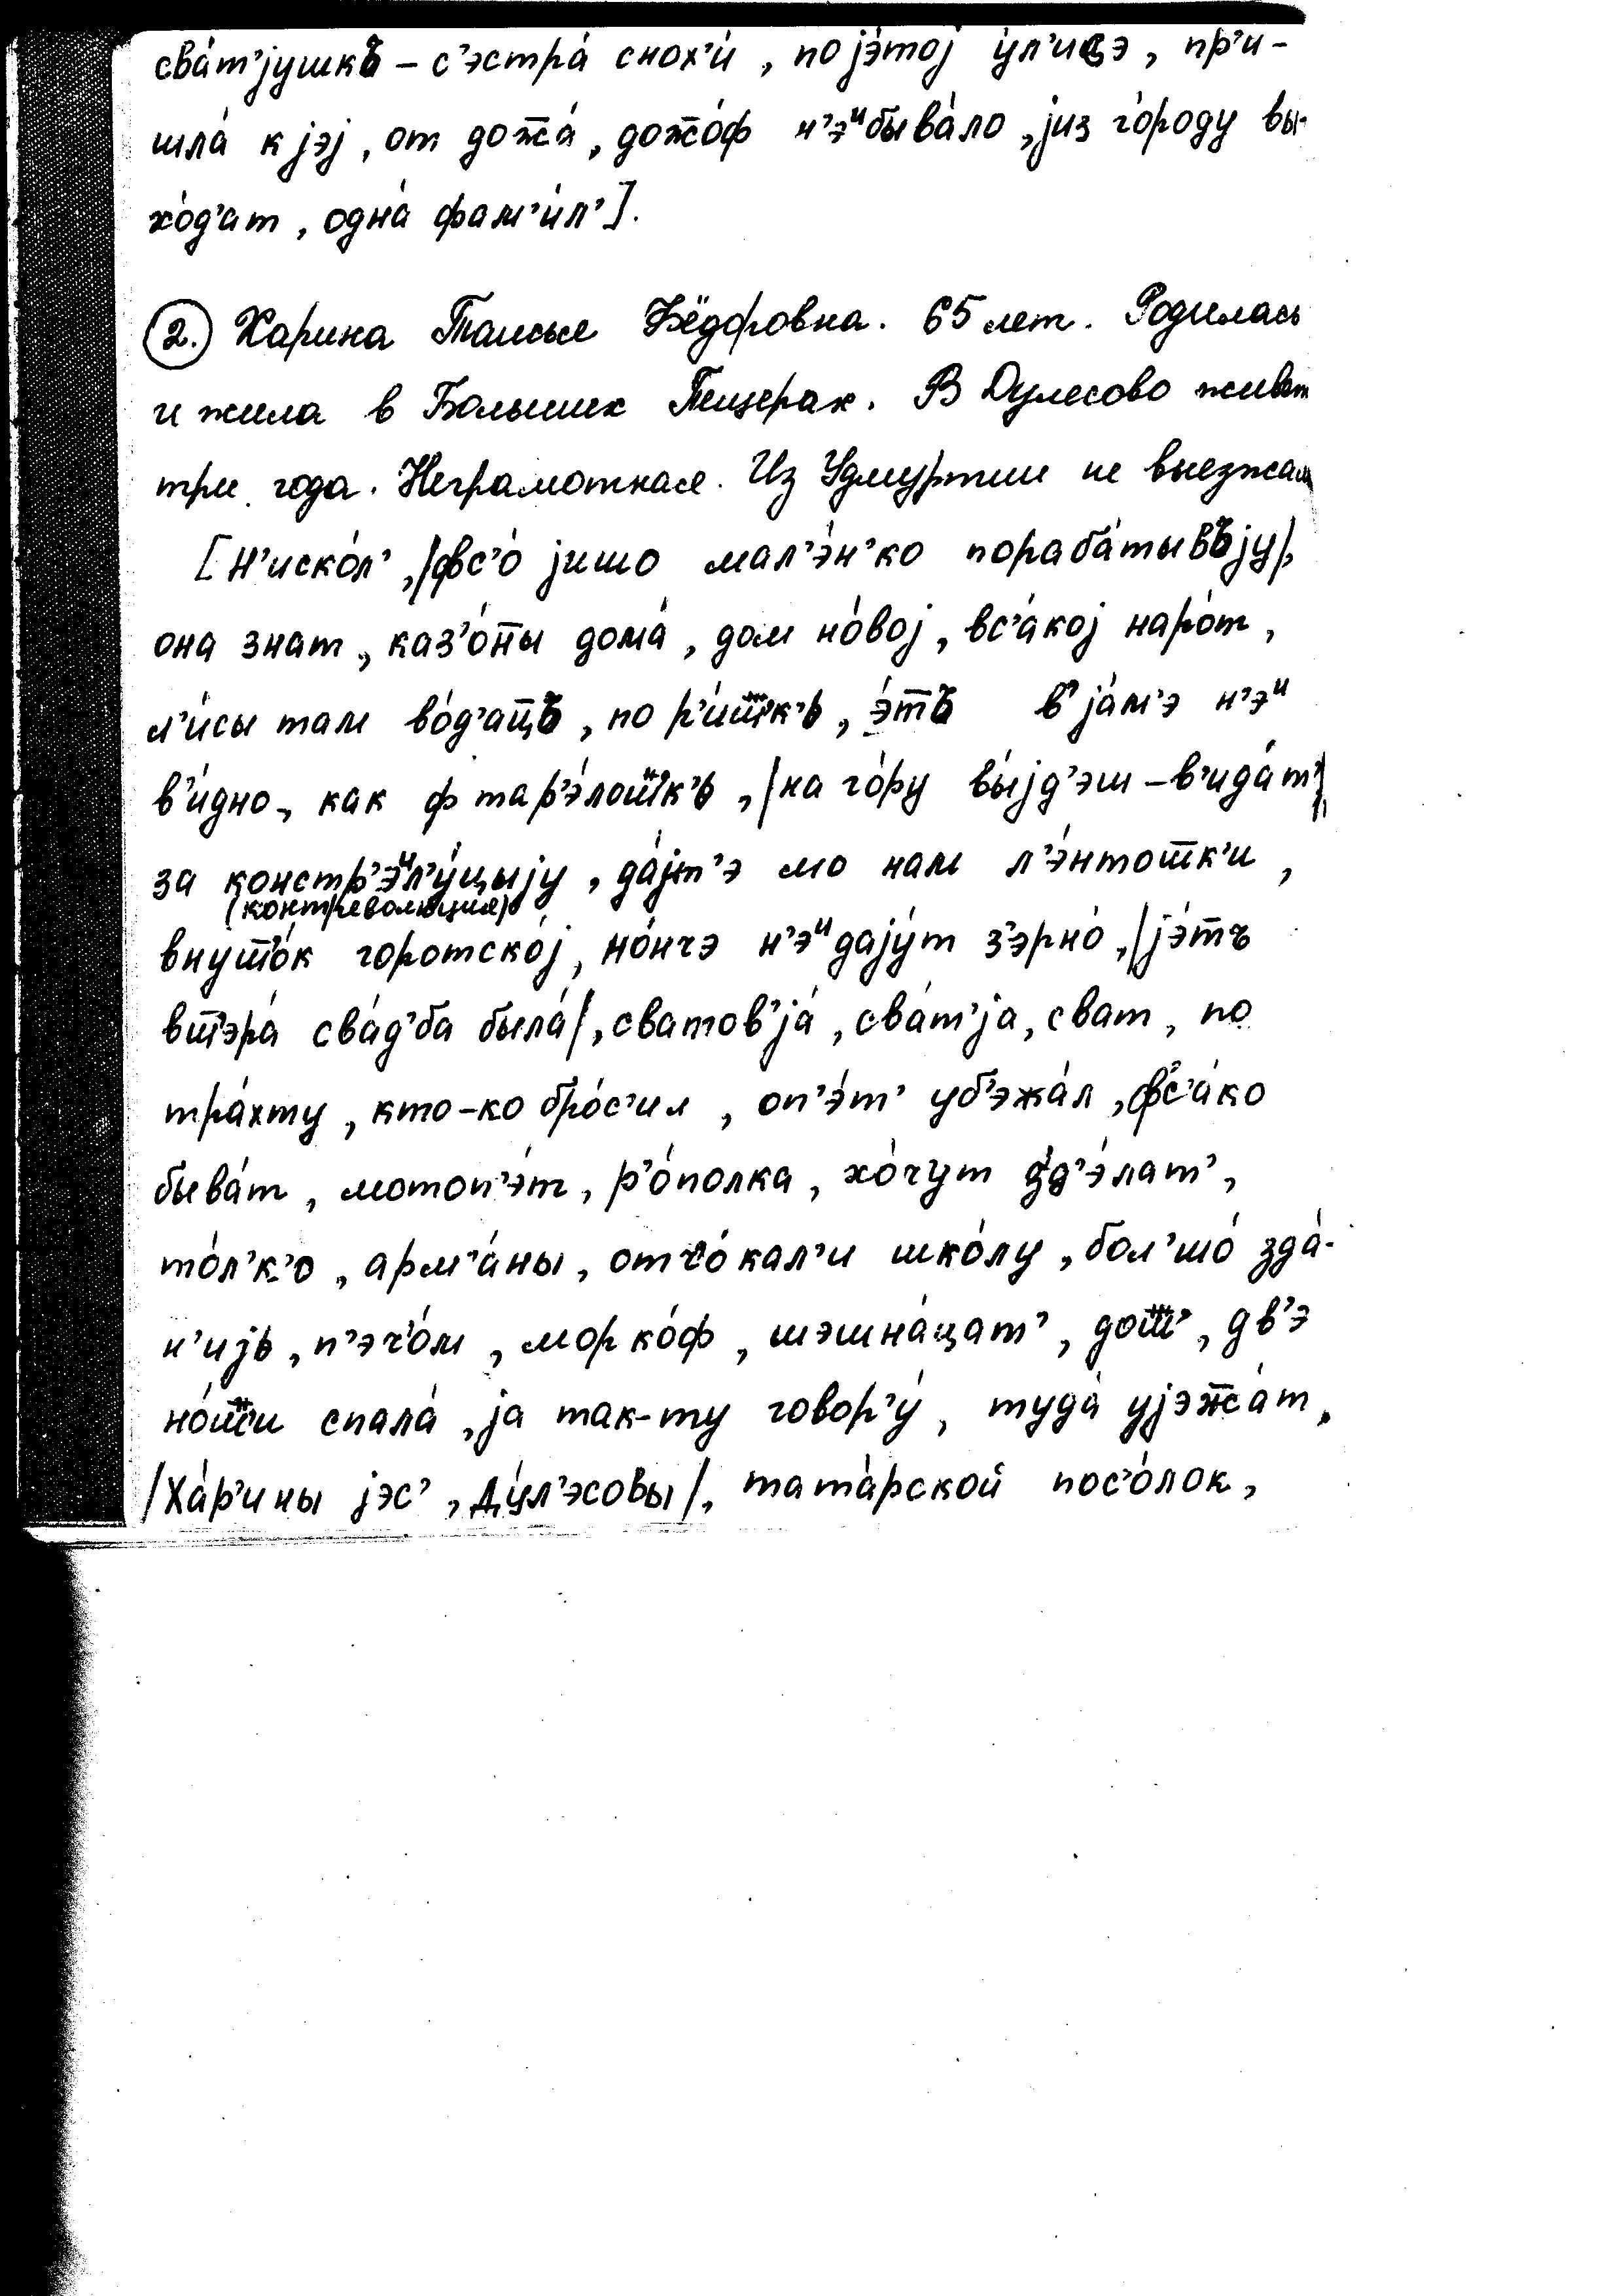 сва́т'јушкъ – с'эстра́ снох'и́, по јэ́тој у́л'ицэ, пр'и-
шла́ к јэј, от дож̅а́, дож̅о́ф н'эᶦбыва́ло, јиз го́роду вы-
хо́д'ат, одна́ фам'и́л'].
2. Харина Таисья Фёдоровна. 65 лет. Родилась
и жила в Больших Пещерах. В Дулесово живёт
три года. Неграмотная. Из Удмуртии не выезжала
[н'иско́л', /фс'о́ јишо мал'э́н'ко пораба́тывъју/,
она знат, каз'о́н̅ы дома́, дом но́вој, вс'а́кој наро́т,
л'и́сы там во́д'ац̅ъ, по р'и́шк'ь, э́тъ в'јáм'э н'эᶦ
в'и́дно, как ф тар'э́лошк'ь, /на го́ру вы́јд'эш – в'ида́т'/
за констр'эᶦл'у́цыју, да́јт'э мо нам л'э́нтошк'и,
(контреволюция)
внуто́к горотско́ј, но́нчэ н'эᶦдају́т з'эрно́, /јэ́тъ
вт'эра́ сва́д'ба была́/, сватов'ја́, сва́т'ја, сват, по
тра́хту, кто-ко бро́с'ил, оп'э́т' уб'эжа́л, фс'а́ко
быва́т, мотоп'э́т, р'о́полка, хо́чут зд'э́лат',
то́л'к'о, арм'а́ны, отч'о́кал'и шко́лу, бол'шо́ зда́-
н'ијь, п'эч'о́м, морко́ф, шэшна́цат', дош', дв'э
но́ши спала́, ја так-ту говор'у́, туда́ ујэж̅а́т,
/Ха́р'ины јэс', Ду́л'эсовы/, тата́рской пос'о́лок,